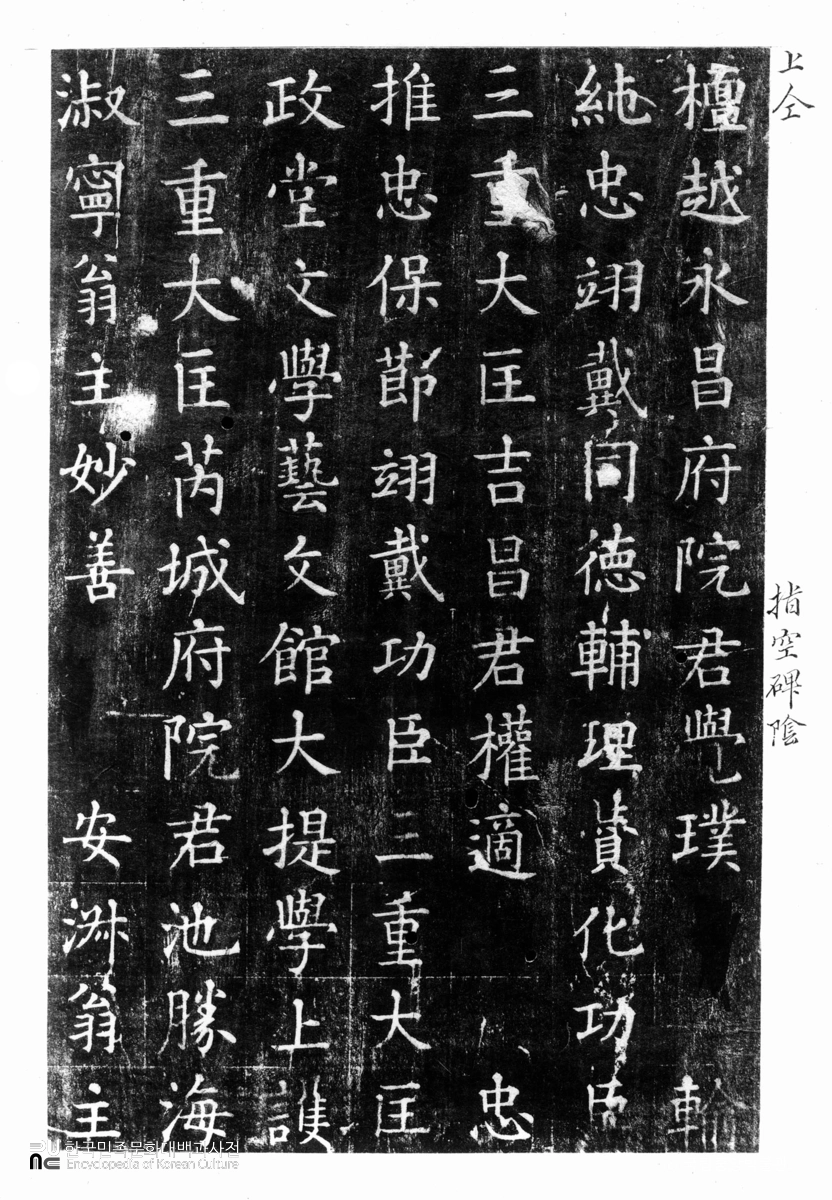 上仝
指空碑陰
檀越永昌府院君覺璞 輪
純忠翊戴同徳輔理賛化功臣
三重大匡吉昌君權適 忠
推忠保莭翊戴功臣三重大匡
政堂文學藝文館大提學上護
三重大匡芮城府院君池勝海
淑寧翁主妙善 安淑翁主
한국민족문화대백과사전
Encyclopedia of Korean Culture